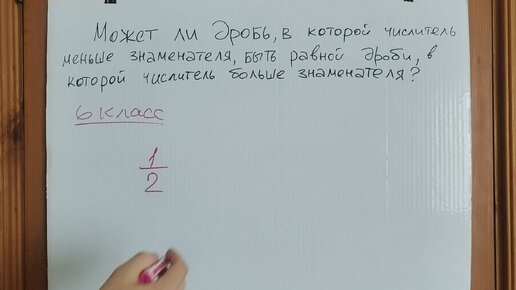 Может ли дробь, в которой числитель
меньше знаменателя, быть равной дроби, в
которой числитель больше знаменателя?
6 класс
1
2